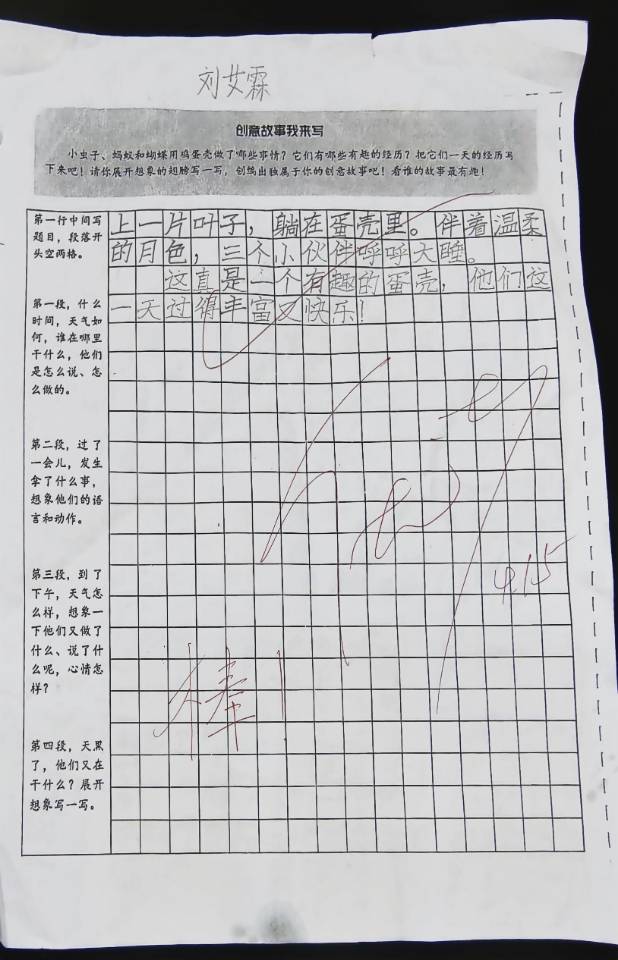 刘艾霖
创意故事我来写
小虫子、蚂蚁和蝴蝶用鸡蛋壳做了哪些事情？它们有哪些有趣的经历？把它们一天的经历写
下来吧！请你展开想象的翅膀写一写，创编出独属于你的创意故事吧！看谁的故事最有趣！
第一行中间写
题目，段落开
头空两格。
上一片叶子，躺在蛋壳里。伴着温柔
的月色，三个小伙伴呼呼大睡。
这真是一个有趣的蛋壳，他们这
一天过得丰富又快乐！
第一段，什么
时间，天气如
何，谁在哪里
干什么，他们
是怎么说、怎
么做的。
第二段，过了
一会儿，发生
拿了什么事，
想象他们的语
言和动作。
第三段，到了
下午，天气怎
么样，想象一
下他们又做了
什么、说了什
么呢，心情怎
样？
第四段，天黑
了，他们又在
干什么？展开
想象写一写。
4.15
棒！